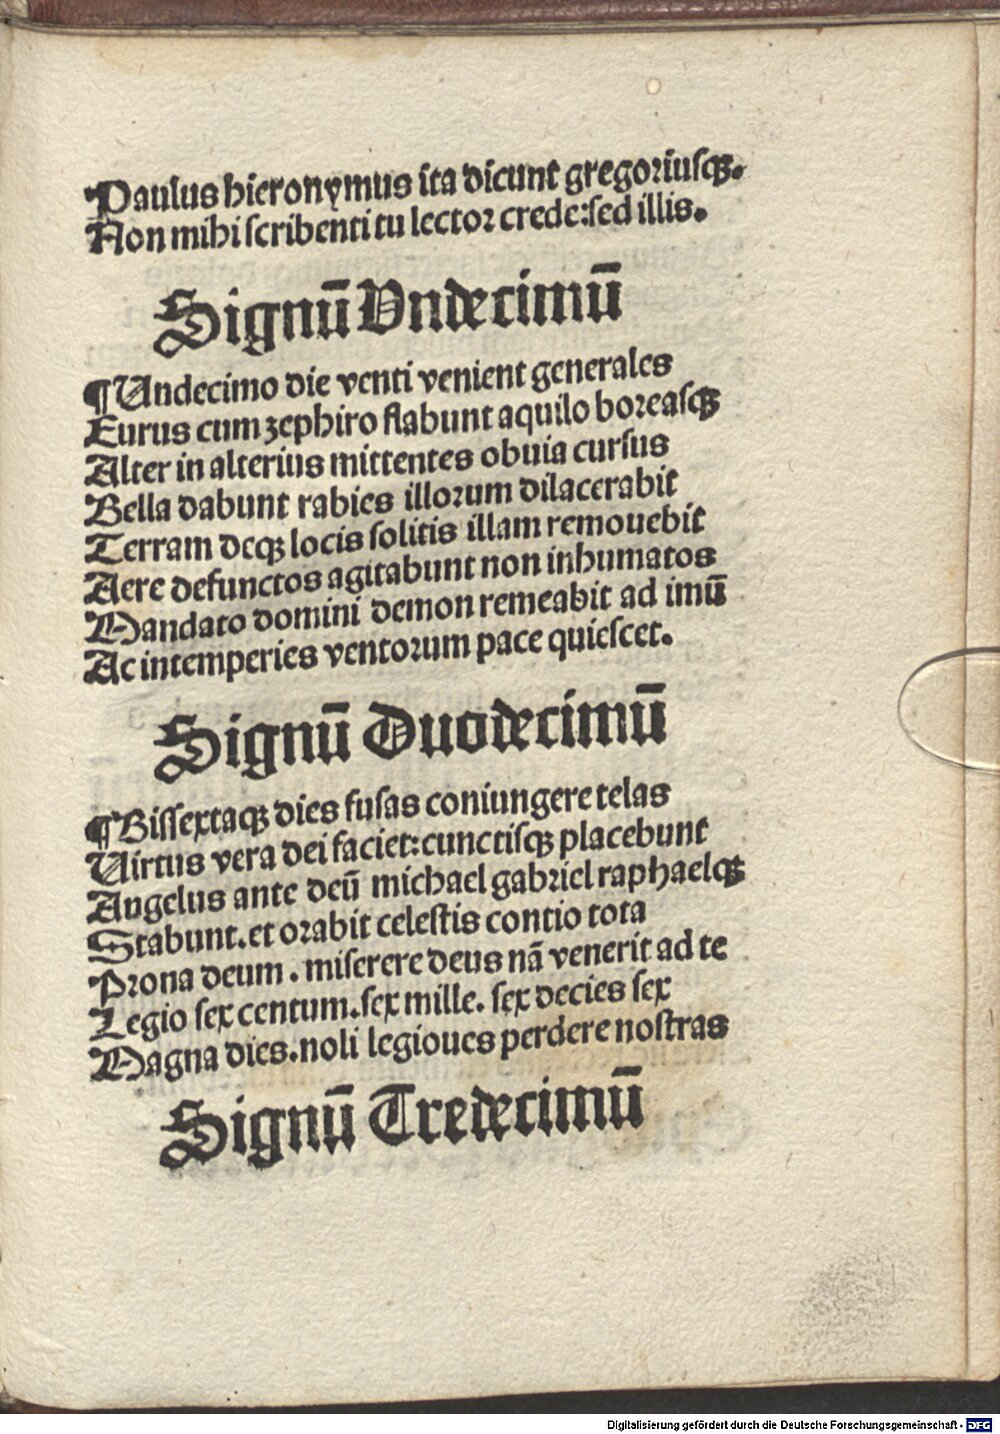 Paulus hieronymus ita dicunt gregoriusqꝫ.
Non mihi scribenti tu lector crede:sed illis.
Signū Undecimū
¶ Undecimo die venti venient generales
Eurus cum zephiro flabunt aquilo boreasqꝫ
Alter in alterius mittentes obuia cursus
Bella dabunt rabies illorum dilacerabit
Terram deqꝫ locis solitis illam remouebit
Aere defunctos agitabunt non inhumatos
Mandato domini demon remeabit ad imū
Ac intemperies ventorum pace quiescet.
Signū Duodecimū
¶ Bissextaqꝫ dies fusas coniungere telas
Uirtus vera dei faciet:cunctisqꝫ placebunt
Angelus ante deū michael gabriel raphaelqꝫ
Stabunt.et orabit celestis contio tota
Prona deum. miserere deus nā venerit ad te
Legio sex centum.sex mille. sex decies sex
Magna dies.noli legioues perdere nostras
Signū Tredecimū
Digitalisierung gefördert durch die Deutsche Forschungsgemeinschaft - DFG